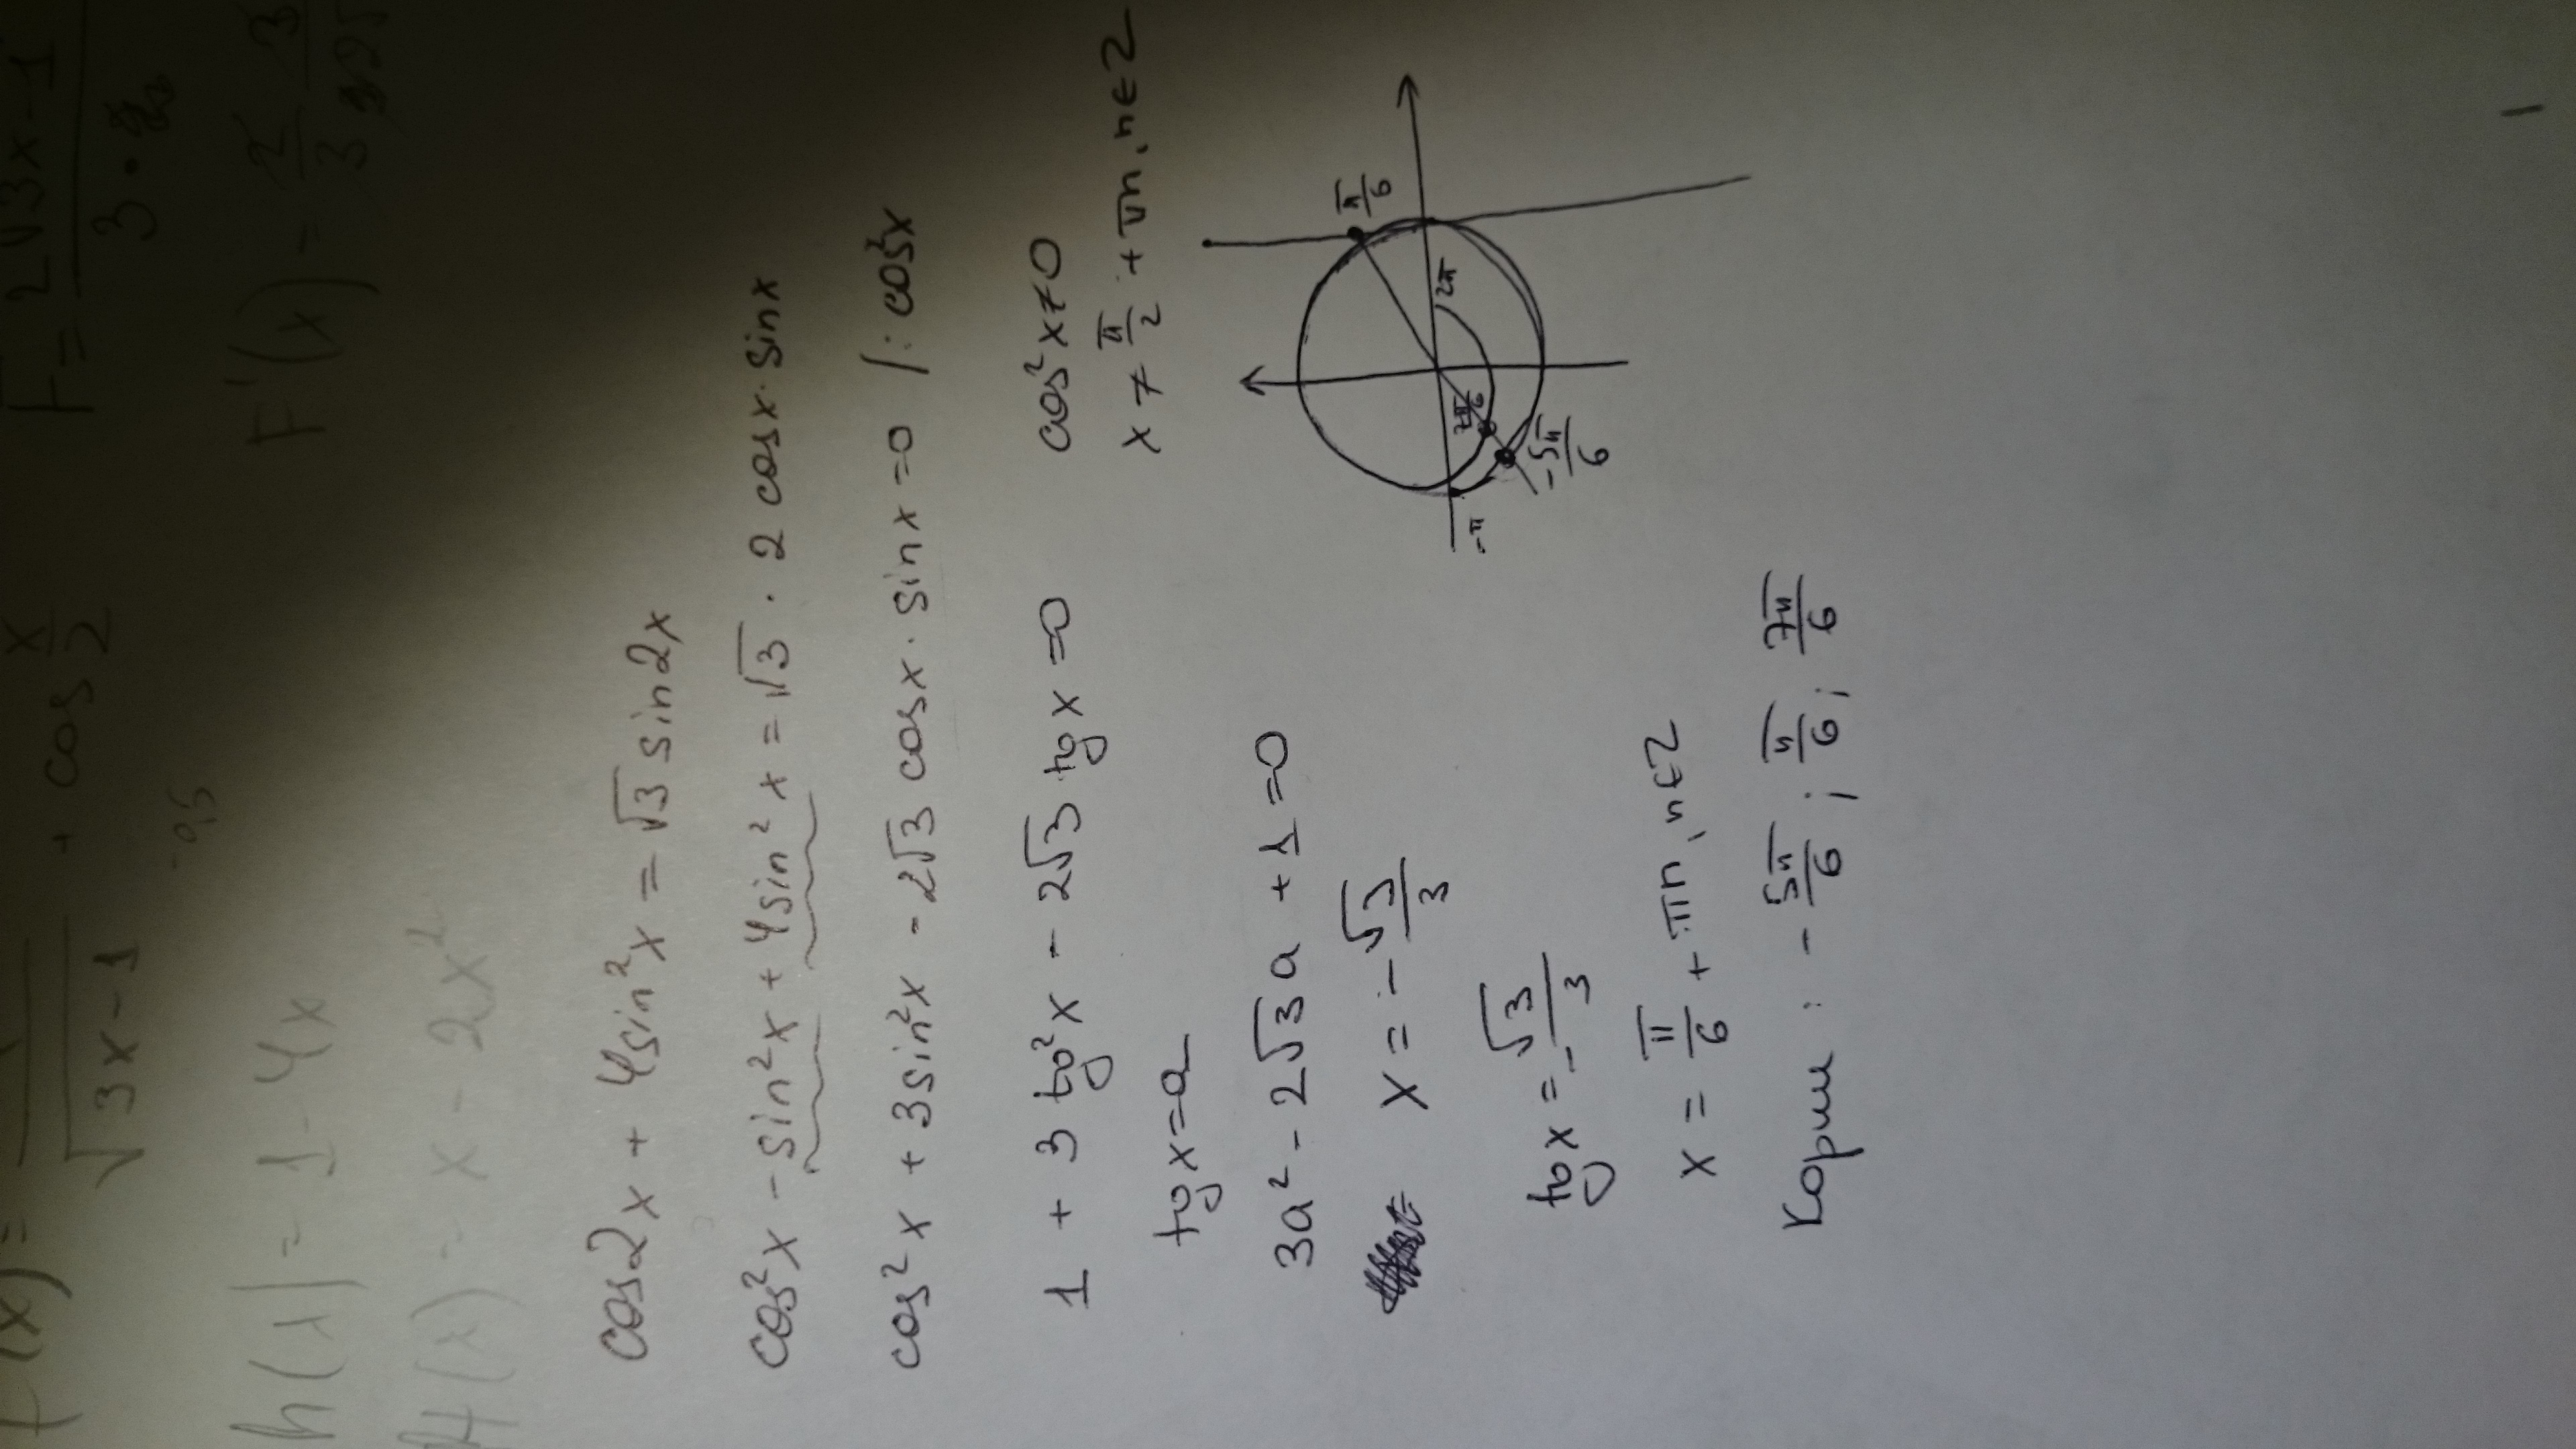 √3x-1
+ cos x/2
F = 2√3x-1 / 3·
-0,5
h(x) = 1 - 4x
F'(x) =
H(x) = x - 2x²
cos2x + 4sin²x = √3 sin2x
cos²x - sin²x + 4sin²x = √3 · 2 cosx · sinx
cos²x + 3sin²x - 2√3 cosx · sinx = 0 /: cos²x
1 + 3 tg²x - 2√3 tgx = 0
cos²x ≠ 0
tgx = a
x ≠ π/2 + πn, n∈Z
3a² - 2√3a + 1 = 0
x = -√3/3
tgx = -√3/3
x = π/6 + πn, n∈Z
Корни: -5π/6; π/6; 7π/6
π/6
2π
7π/6
-π
-5π/6